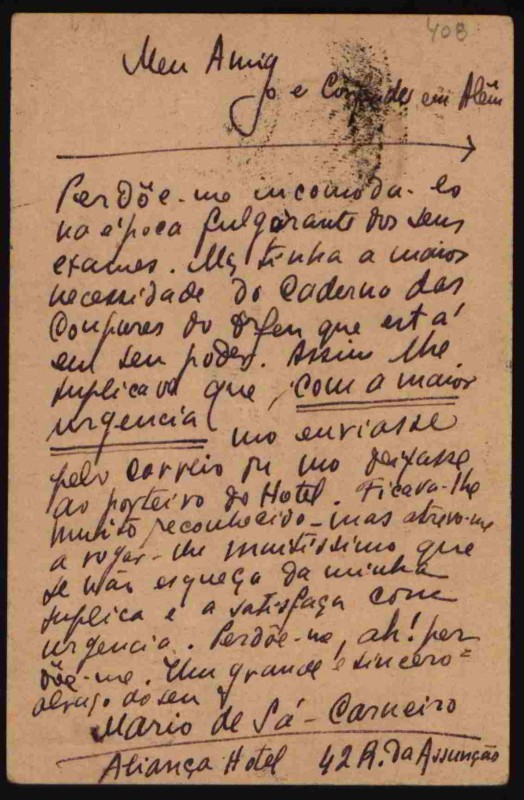 408
Meu Amig
o e Confrade em Além
Perdõe-me incomoda-lo
na época fulgurante dos seus
exames. Mas tinha a maior
necessidade do Caderno das
Compares do Orfeu que está
em seu poder. Assim lhe
suplicava que, com a maior
urgencia mo enviasse
pelo correio ou mo deixasse
ao porteiro do Hotel. Ficava-lhe
muito reconhecido - mas atrevo-me
a rogar-lhe muitissimo que
se não esqueça da minha
suplica e a satisfaça com
urgencia. Perdõe-me, ah! per
dõe-me. Um grande e sincero=
abraço do seu
Mario de Sá-Carneiro
Aliança Hotel 42 R. da Assunção